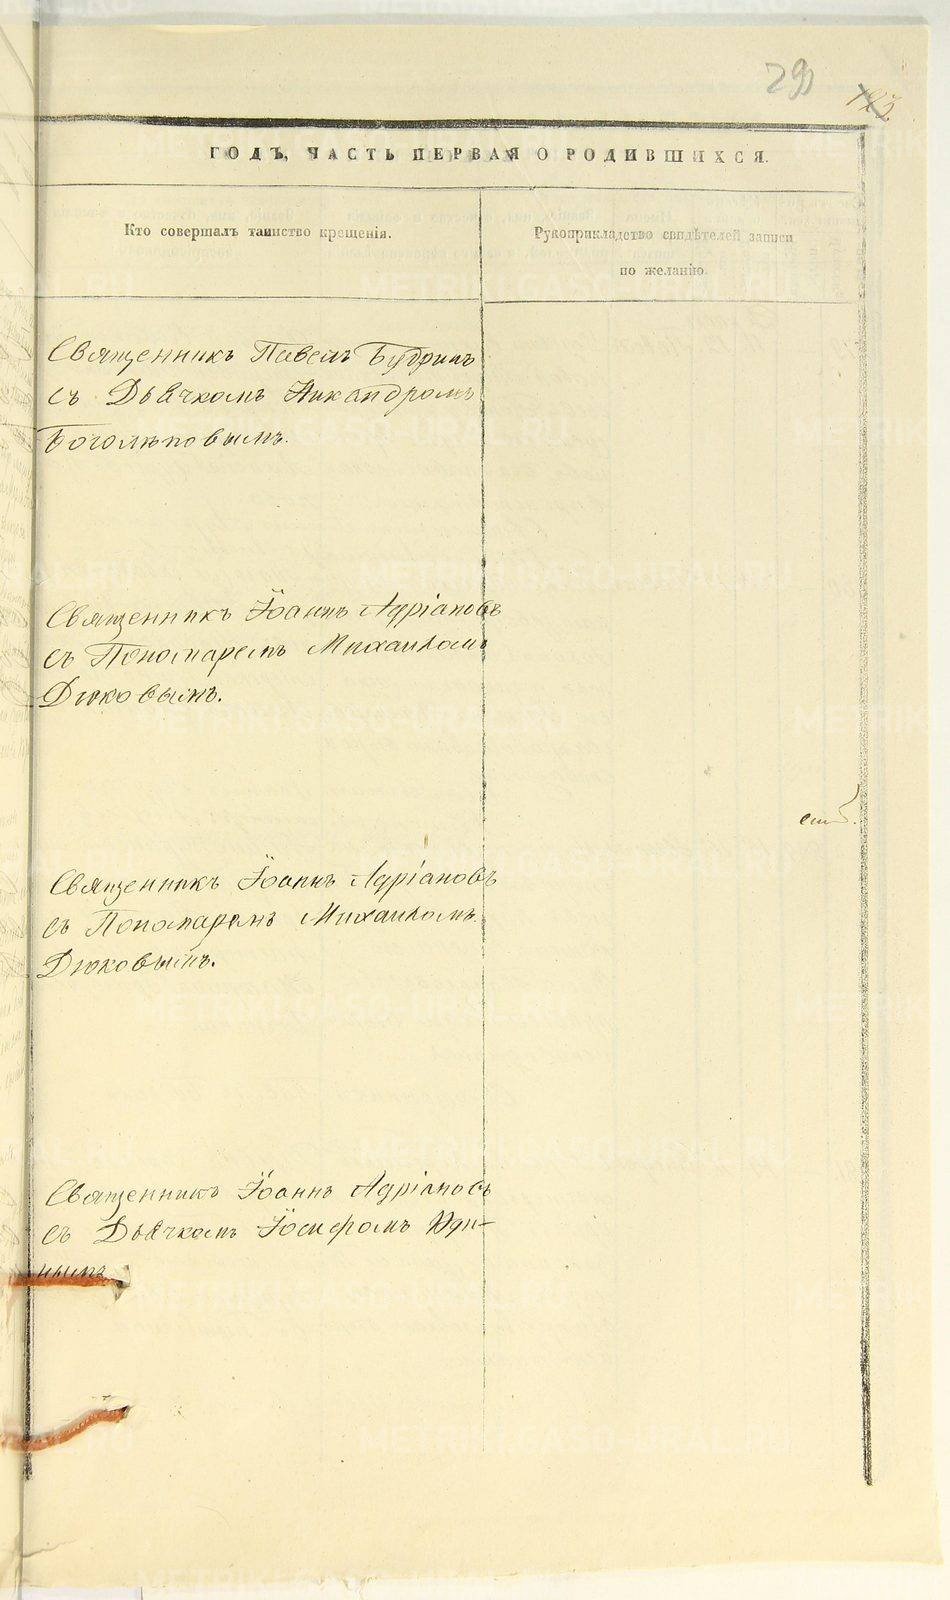 29
123.
ГОДЪ, ЧАСТЬ ПЕРВАЯ О РОДИВШИХСЯ.
Кто совершалъ таинство крещенія.
Рукоприкладство свидѣтелей записи
по желанію.
Священникъ Павелъ Бубринъ
съ Дьячкомъ Никандромъ
Боголѣповымъ.
Священникъ Іоаннъ Адріановъ
съ Пономаремъ Михаиломъ
Дюковымъ.
Священникъ Іоаннъ Адріановъ
съ Пономаремъ Михаиломъ
Дюковымъ.
Священникъ Іоаннъ Адріановъ
съ Дьячкомъ Іосифомъ Юди-
нымъ
METRIKI.GASO-URAL.RU